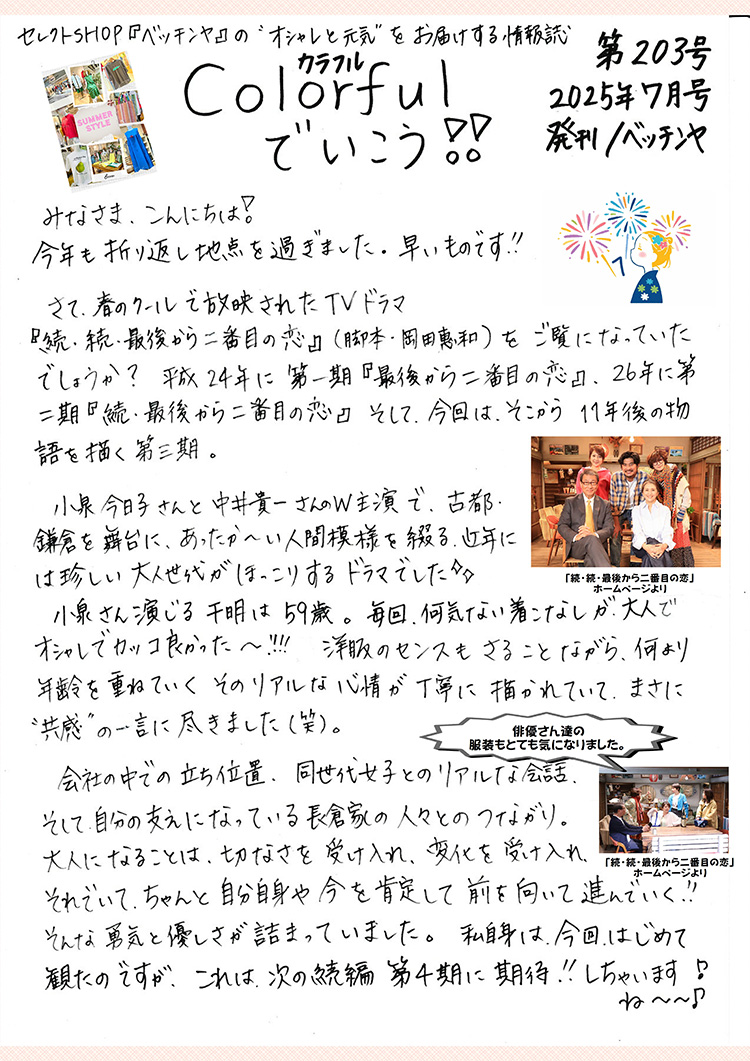 セレクトSHOP『ベッチンヤ』の“オシャレと元気”をお届けする情報誌
カラフル
Colorful
でいこう!!
第203号
2025年7月号
発刊/ベッチンヤ
SUMMER
STYLE
みなさま、こんにちは!
今年も折り返し地点を過ぎました。早いものです!!
さて、春のクールで放映されたTVドラマ
『続・続・最後から二番目の恋』(脚本・岡田惠和)をご覧になっていた
でしょうか? 平成24年に第一期『最後から二番目の恋』、26年に第
二期『続・最後から二番目の恋』そして、今回は、そこから11年後の物
語を描く第三期。
小泉今日子さんと中井貴一さんのW主演で、古都・
鎌倉を舞台に、あったか〜い人間模様を綴る、近年に
は珍しい大人世代がほっこりするドラマでした
「続・続・最後から二番目の恋」
ホームページより
小泉さん演じる千明は59歳。毎回、何気ない着こなしが、大人で
オシャレでカッコ良かった〜!!!! 洋服のセンスもさることながら、何より
年齢を重ねていくそのリアルな心情が丁寧に描かれていて、まさに
“共感”の一言に尽きました(笑)。
俳優さん達の
服装もとても気になりました。
会社の中での立ち位置、同世代女子とのリアルな会話、
そして、自分の支えになっている長倉家の人々とのつながり。
大人になることは、切なさを受け入れ、変化を受け入れ、
それでいて、ちゃんと自分自身や今を肯定して前を向いて進んでいく!!
「続・続・最後から二番目の恋」
ホームページより
そんな勇気と優しさが詰まっていました。私自身は、今回、はじめて
観たのですが、これは、次の続編 第4期に期待!!しちゃいます♪
ね〜〜♪